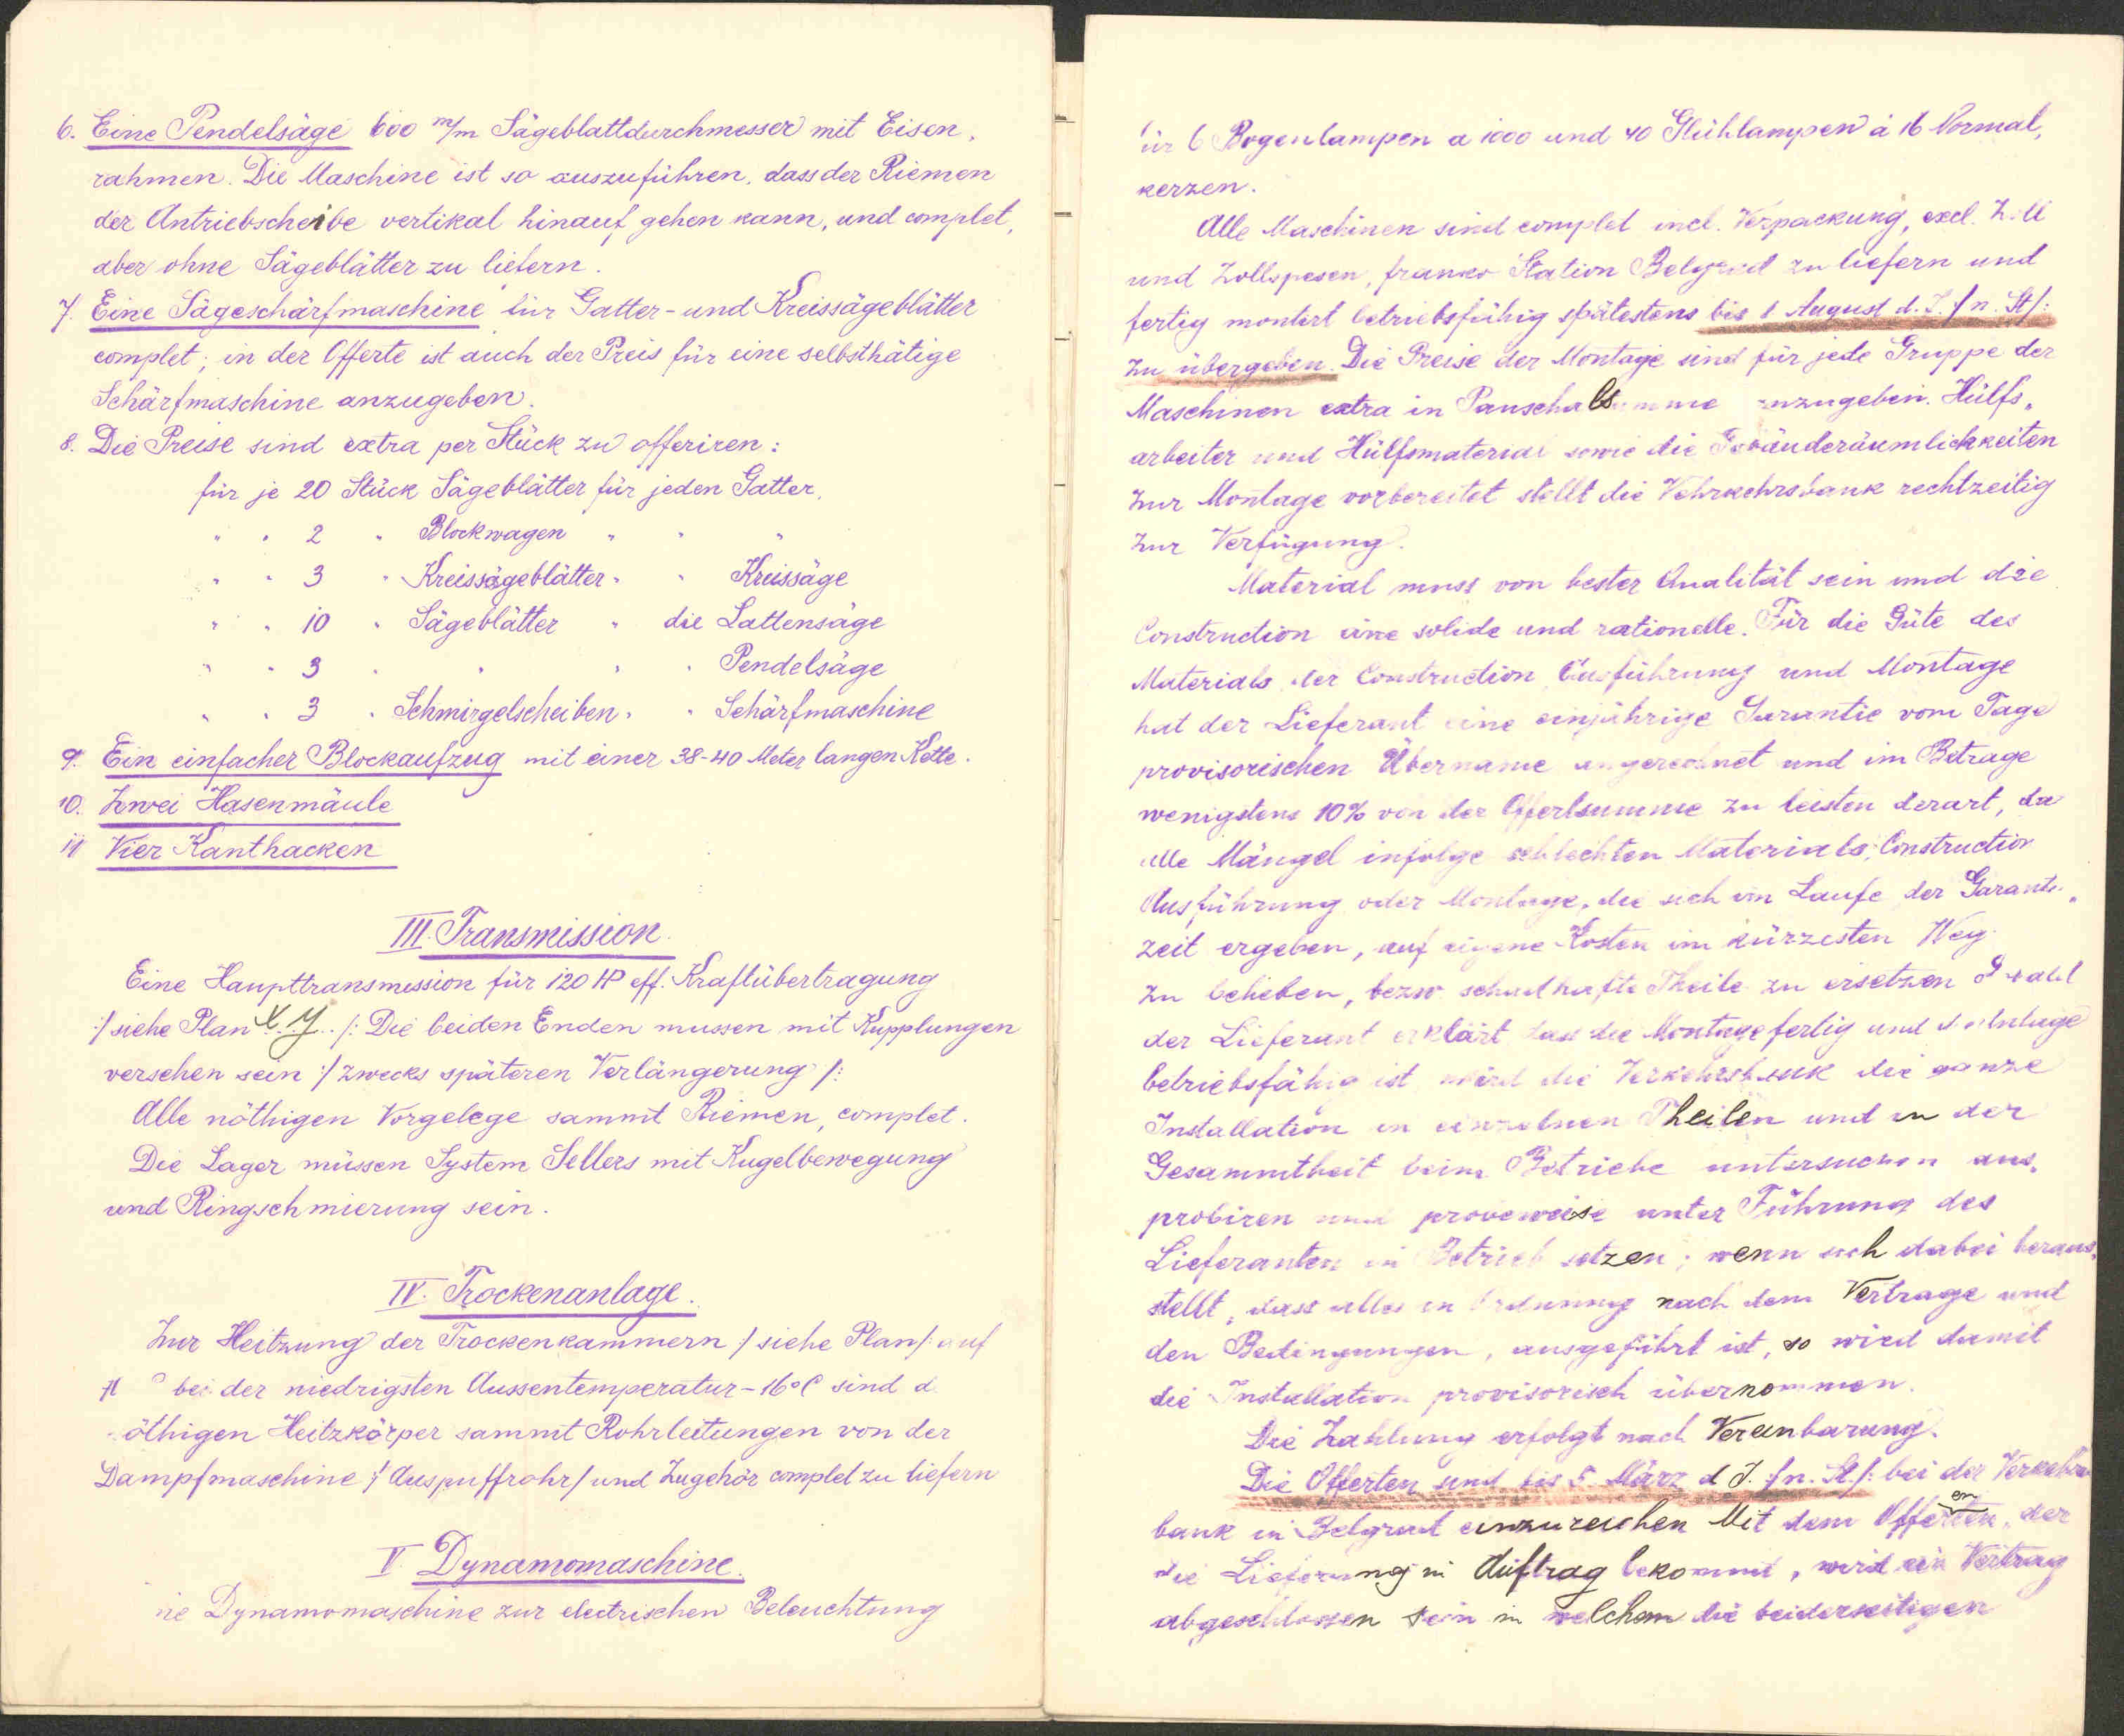 6. Eine Pendelsäge 600 m/m Sägeblattdurchmesser mit Eisen,
rahmen. Die Maschine ist so auszuführen, dass der Riemen
der Antriebscheibe vertikal hinauf gehen kann, und complet,
aber ohne Sägeblätter zu liefern.
7. Eine Sägeschärfmaschine für Gatter- und Kreissägeblätter
complet; in der Offerte ist auch der Preis für eine selbsthätige
Schärfmaschine anzugeben.
8. Die Preise sind extra per Stück zu offeriren:
für je 20 Stück Sägeblätter für jeden Gatter,
" " 2 " Blockwagen " " "
" " 3 " Kreissägeblätter " " Kreissäge
" " 10 " Sägeblätter " die Lattensäge
" " 3 " " " " Pendelsäge
" " 3 " Schmirgelscheiben " " Schärfmaschine
9. Ein einfacher Blockaufzug mit einer 38-40 Meter langen Kette.
10. Zwei Hasenmäule
11 Vier Kanthacken
III. Transmission.
Eine Haupttransmission für 120 HP eff. Kraftübertragung
:/ siehe Plan X. Y. /: Die beiden Enden mussen mit Kupplungen
versehen sein :/ zwecks späteren Verlängerung /:
Alle nöthigen Vorgelege sammt Riemen, complet.
Die Lager müssen System Sellers mit Kugelbewegung
und Ringschmierung sein.
IV. Trockenanlage.
Zur Heitzung der Trockenkammern :/ siehe Plan /: auf
bei der niedrigsten Aussentemperatur -16°C sind d
öthigen Heitzkörper sammt Rohrleitungen von der
Dampfmaschine :/ Auspuffrohr / und Zugehör complet zu liefern
V Dynamomaschine.
ne Dynamomaschine zur electrischen Beleuchtung
für 6 Bogenlampen a 1000 und 40 Glühlampen à 16 Normal,
kerzen.
Alle Maschinen sind complet incl. Verpackung, excl. Zoll
und Zollspesen, franko Station Belgrad zu liefern und
fertig montirt betriebsfähig spätestens bis 1 August d. J. :/ n. St /:
zu übergeben. Die Preise der Montage sind für jede Gruppe der
Maschinen extra in Pauschalsumme anzugeben. Hülfs,
arbeiter und Hülfsmaterial sowie die Gebäuderäumlichkeiten
zur Montage vorbereitet stellt die Vehrkehrsbank rechtzeitig
zur Verfügung.
Material muss von bester Qualität sein und die
Construction eine solide und rationelle. Für die Güte des
Materials der Construction Ausführung und Montage
hat der Lieferant eine einjährige Garantie vom Tage
provisorischen Übername angerechnet und im Betrage
wenigstens 10% von der Offertsumme zu leisten derart, da
alle Mängel infolge schlechten Materials, Construction
Ausführung oder Montage, die sich im Laufe der Garantie,
zeit ergeben, auf eigene Kosten im kürzesten Weg
zu beheben, bezw. schadhafte Theile zu ersetzen
der Lieferant erklärt dass die Montage fertig und Anlage
betriebsfähig ist, wird die Verkehrsbank die ganze
Installation in einzelnen Theilen und in der
Gesammtheit beim Betriebe untersuchen aus,
probiren und probeweise unter Führung des
Lieferanten in Betrieb setzen; wenn sich dabei heraus,
stellt, dass alles in Ordnung nach dem Vertrage und
den Bedingungen, ausgeführt ist, so wird damit
die Installation provisorisch übernommen.
Die Zahlung erfolgt nach Vereinbarung.
Die Offerten sind bis 5. März d J. :/ n. St. /: bei der Verkehrs
bank in Belgrad einzureichen Mit dem Offerenten, der
die Lieferung in Auftrag bekommt, wird ein Vertrag
abgeschlossen sein in welchem die beiderseitigen